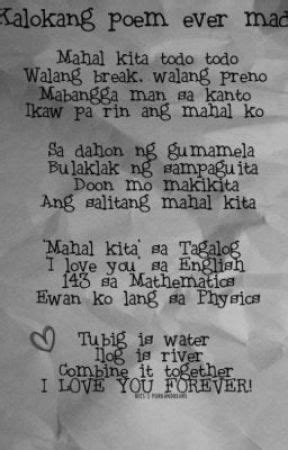 Kalokang poem ever mad
Mahal kita todo todo
Walang break. walang preno
Mabangga man sa kanto
Ikaw pa rin ang mahal ko
Sa dahon ng gumamela
Bulaklak ng sampaguita
Doon mo makikita
Ang salitang mahal kita
'Mahal kita' sa Tagalog
I love you sa English
143 sa Mathematics
Ewan ko lang sa Physics
Tubig is water
Ilog is river
Combine it together
I LOVE YOU FOREVER!